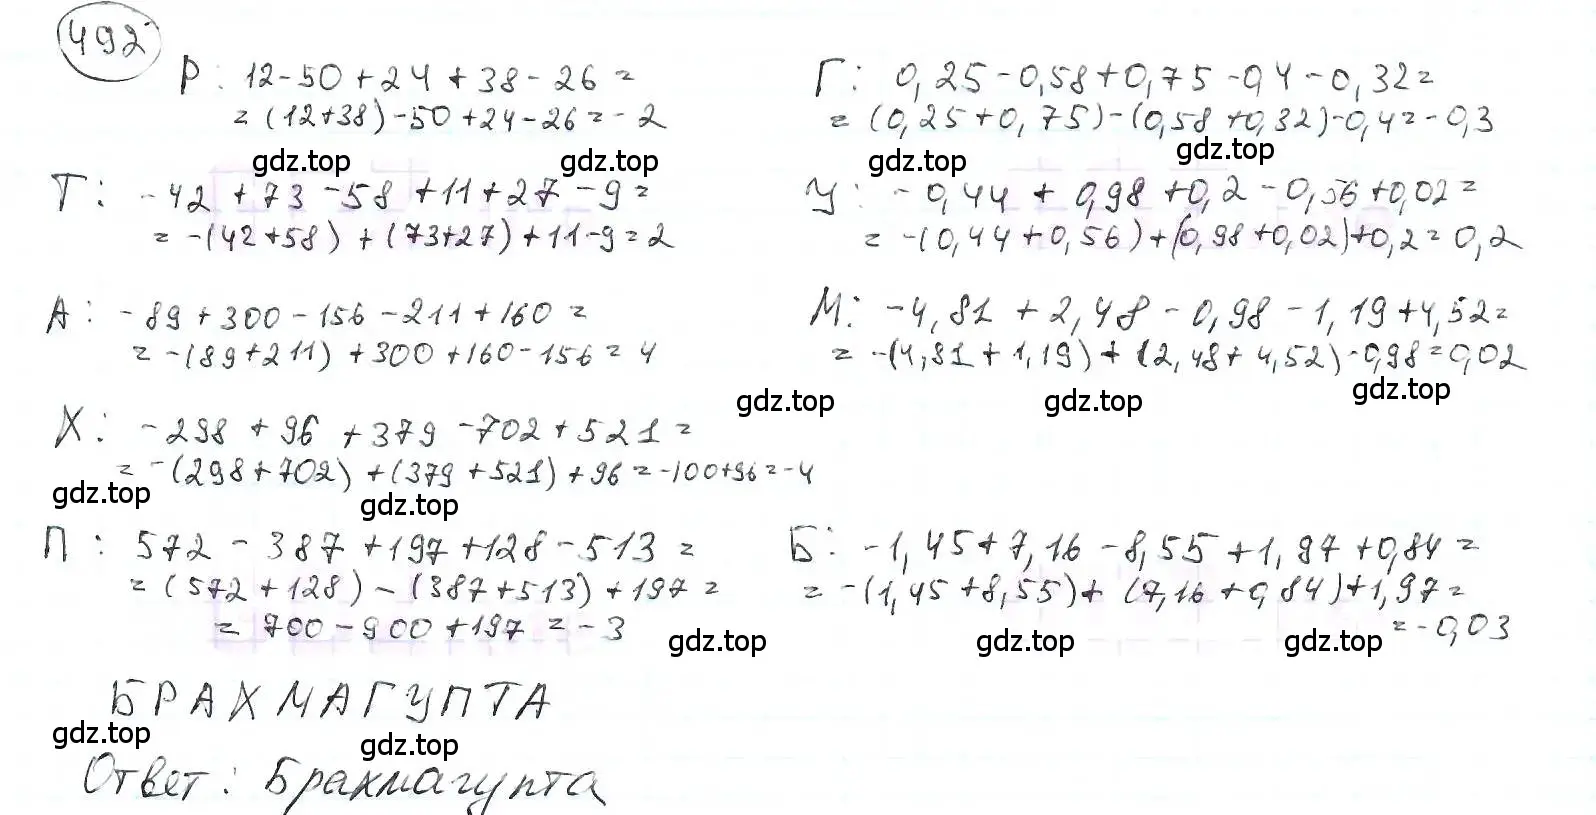 492
Р: 12-50+24+38-26=
=(12+38)-50+24-26=-2
Г: 0,25-0,58+0,75-0,4-0,32=
=(0,25+0,75)-(0,58+0,32)-0,4=-0,3
gdz.top gdz.top gdz.top gdz.top
Т: -42+73-58+11+27-9=
=-(42+58)+(73+27)+11-9=2
У: -0,44+0,98+0,2-0,56+0,02=
=-(0,44+0,56)+(0,98+0,02)+0,2=0,2
А: -89+300-156-211+160=
=-(89+211)+300+160-156=4
М: -4,81+2,48-0,98-1,19+4,52=
=-(4,81+1,19)+(2,48+4,52)-0,98=0,02
gdz.top gdz.top gdz.top
Х: -298+96+379-702+521=
=-(298+702)+(379+521)+96=-100+96=-4
gdz.top gdz.top
П: 572-387+197+128-513=
=(572+128)-(387+513)+197=
=700-900+197=-3
Б: -1,45+7,16-8,55+1,97+0,84=
=-(1,45+8,55)+(7,16+0,84)+1,97=
=-0,03
gdz.top gdz.top gdz.top
БРАХМАГУПТА
gdz.top gdz.top
Ответ: Брахмагупта